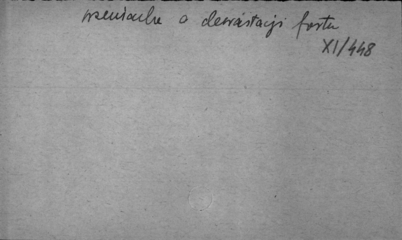 wzmianka o dewastacji fortu
XI/448